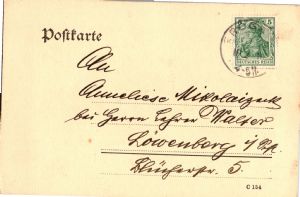 Postkarte
5
DEUTSCHES REICH
An
Anneliese Mikolaizuk
bei Herrn Lehrer Walter
Löwenberg i/Schl.
Blücherstr. 5.
C 154